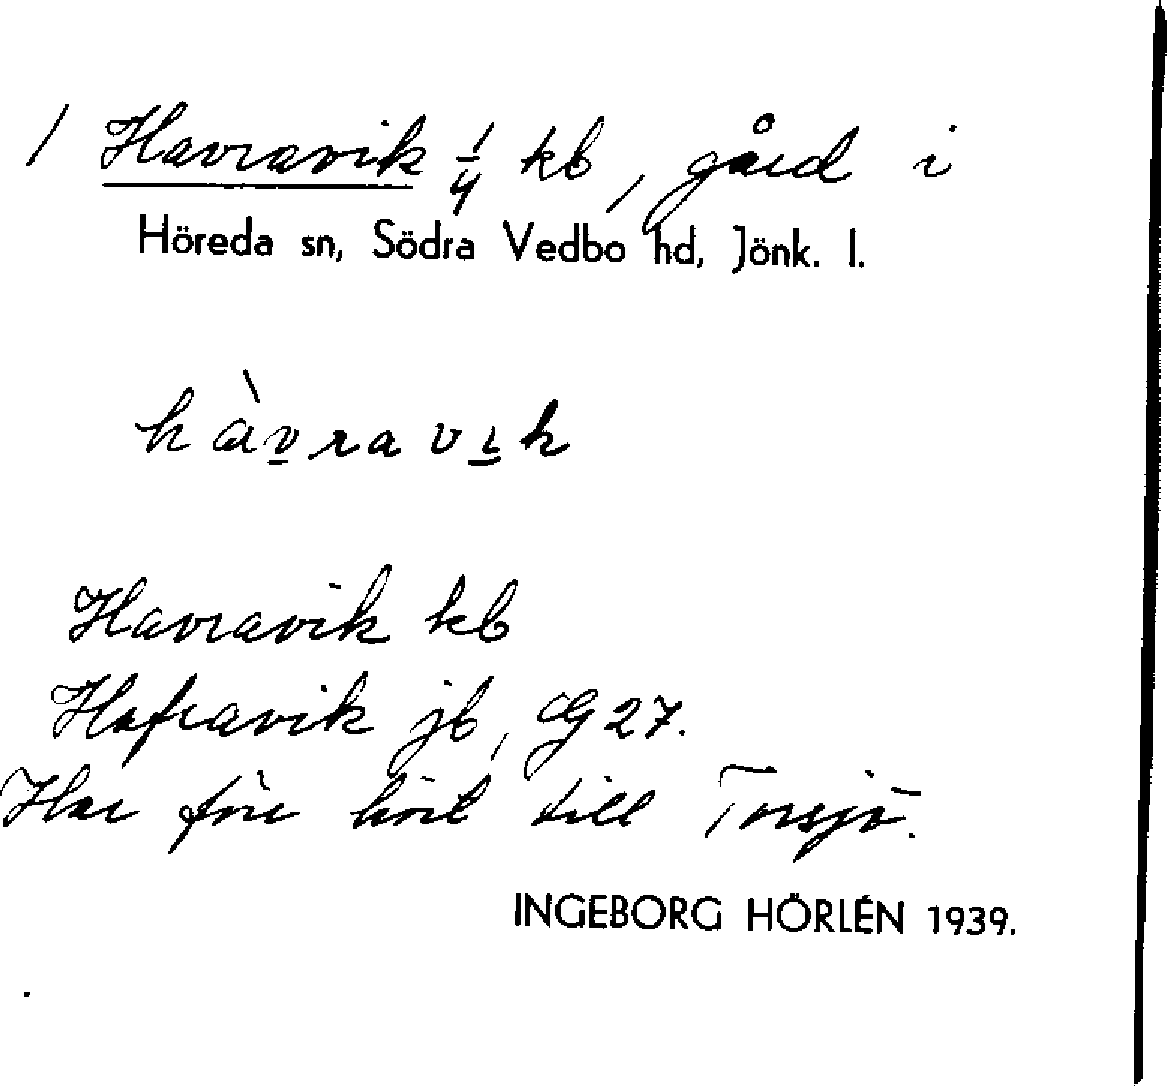 / Havravik 1/4 kb, gård i
Höreda sn, Södra Vedbo hd, Jönk. l.
hàvravik
Havravik kb
Hafravik jb, G 27.
Har förr hört till Torsjö.
INGEBORG HÖRLÉN 1939.